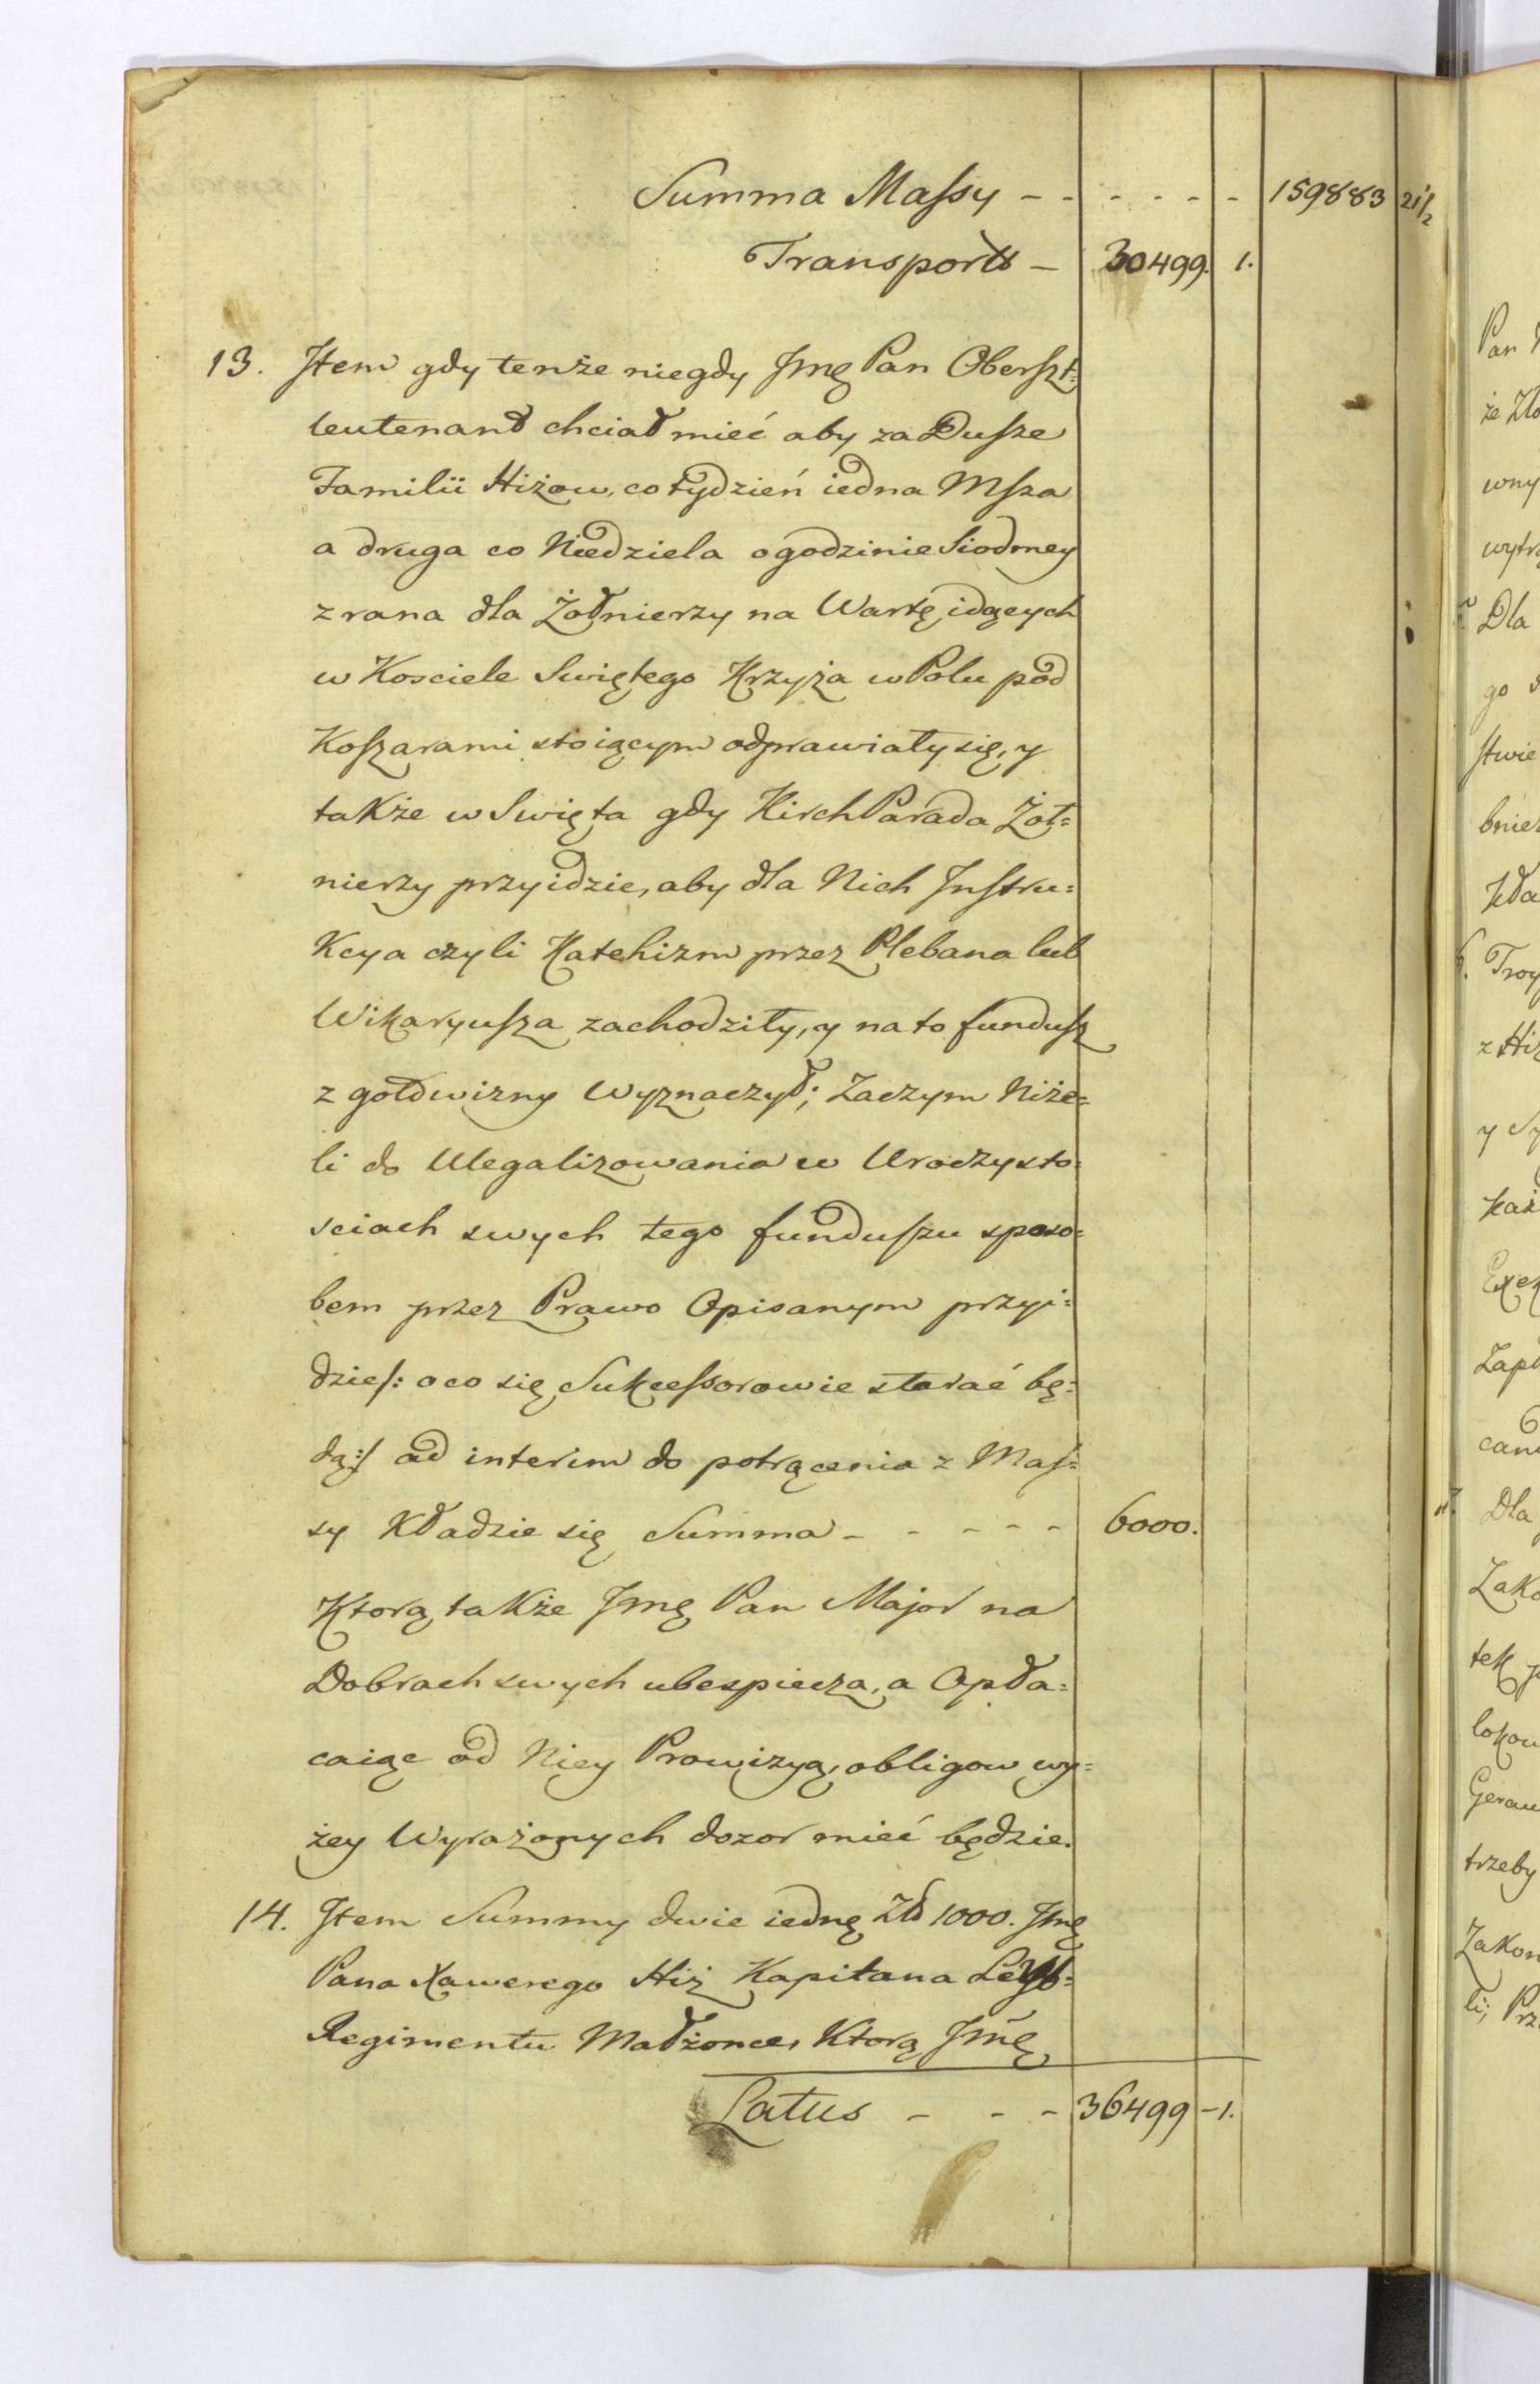 Summa Massy - - - - - - 159883 21½
Transport - 30499. 1.
13. Item gdy tenże niegdy Jmę Pan Oberszt=
leutenant chciał mieć aby za Dusze
Familii Hiżow, co tydzień iedna Msza
a druga co Niedziela o godzinie Siodmey
z rana dla Żołnierzy na Wartę idących
w Kosciele Swiętego Krzyża w Polu pod
Koszarami stoiącym odprawiały się, y
także w Swięta gdy KirchParada Żoł=
nierzy przyidzie, aby dla Nich Instru=
kcya czyli Katehizm przez Plebana lub
Wikaryusza zachodziły, y na to fundusz
z gotowizny Wyznaczył; Zaczym Niże=
li do Ulegalizowania w Uroczysto=
sciach swych tego funduszu sposo=
bem przez Prawo Opisanym przyi=
dzie/: o co się Sukcessorowie starać bę=
dą:/ ad interim do potrącenia z Mas=
sy Kładzie się Summa - - - - - 6000.
Ktorą także Jmę Pan Major na
Dobrach swych ubespiecza, a Opła=
caiąc od Niey Prowizyą, obligow wy=
żey Wyrażonych dozor mieć będzie.
14. Item Summy dwie iednę Zł 1000. Jmę
Pana Xawerego Hiż Kapitana Leyb=
Regimentu Małżonce, Ktorą Jmę
Latus - - - 36499 - 1.
Pan
że Zło
wny
wytrą
Dla
go
stwie
bnie
Kła
6. Troy
z Hiż
y Sy
każ
Exek
Zapł
can
Dla
Zako
tek
lokow
Geraw
trzeby
Zakon
li, Prz